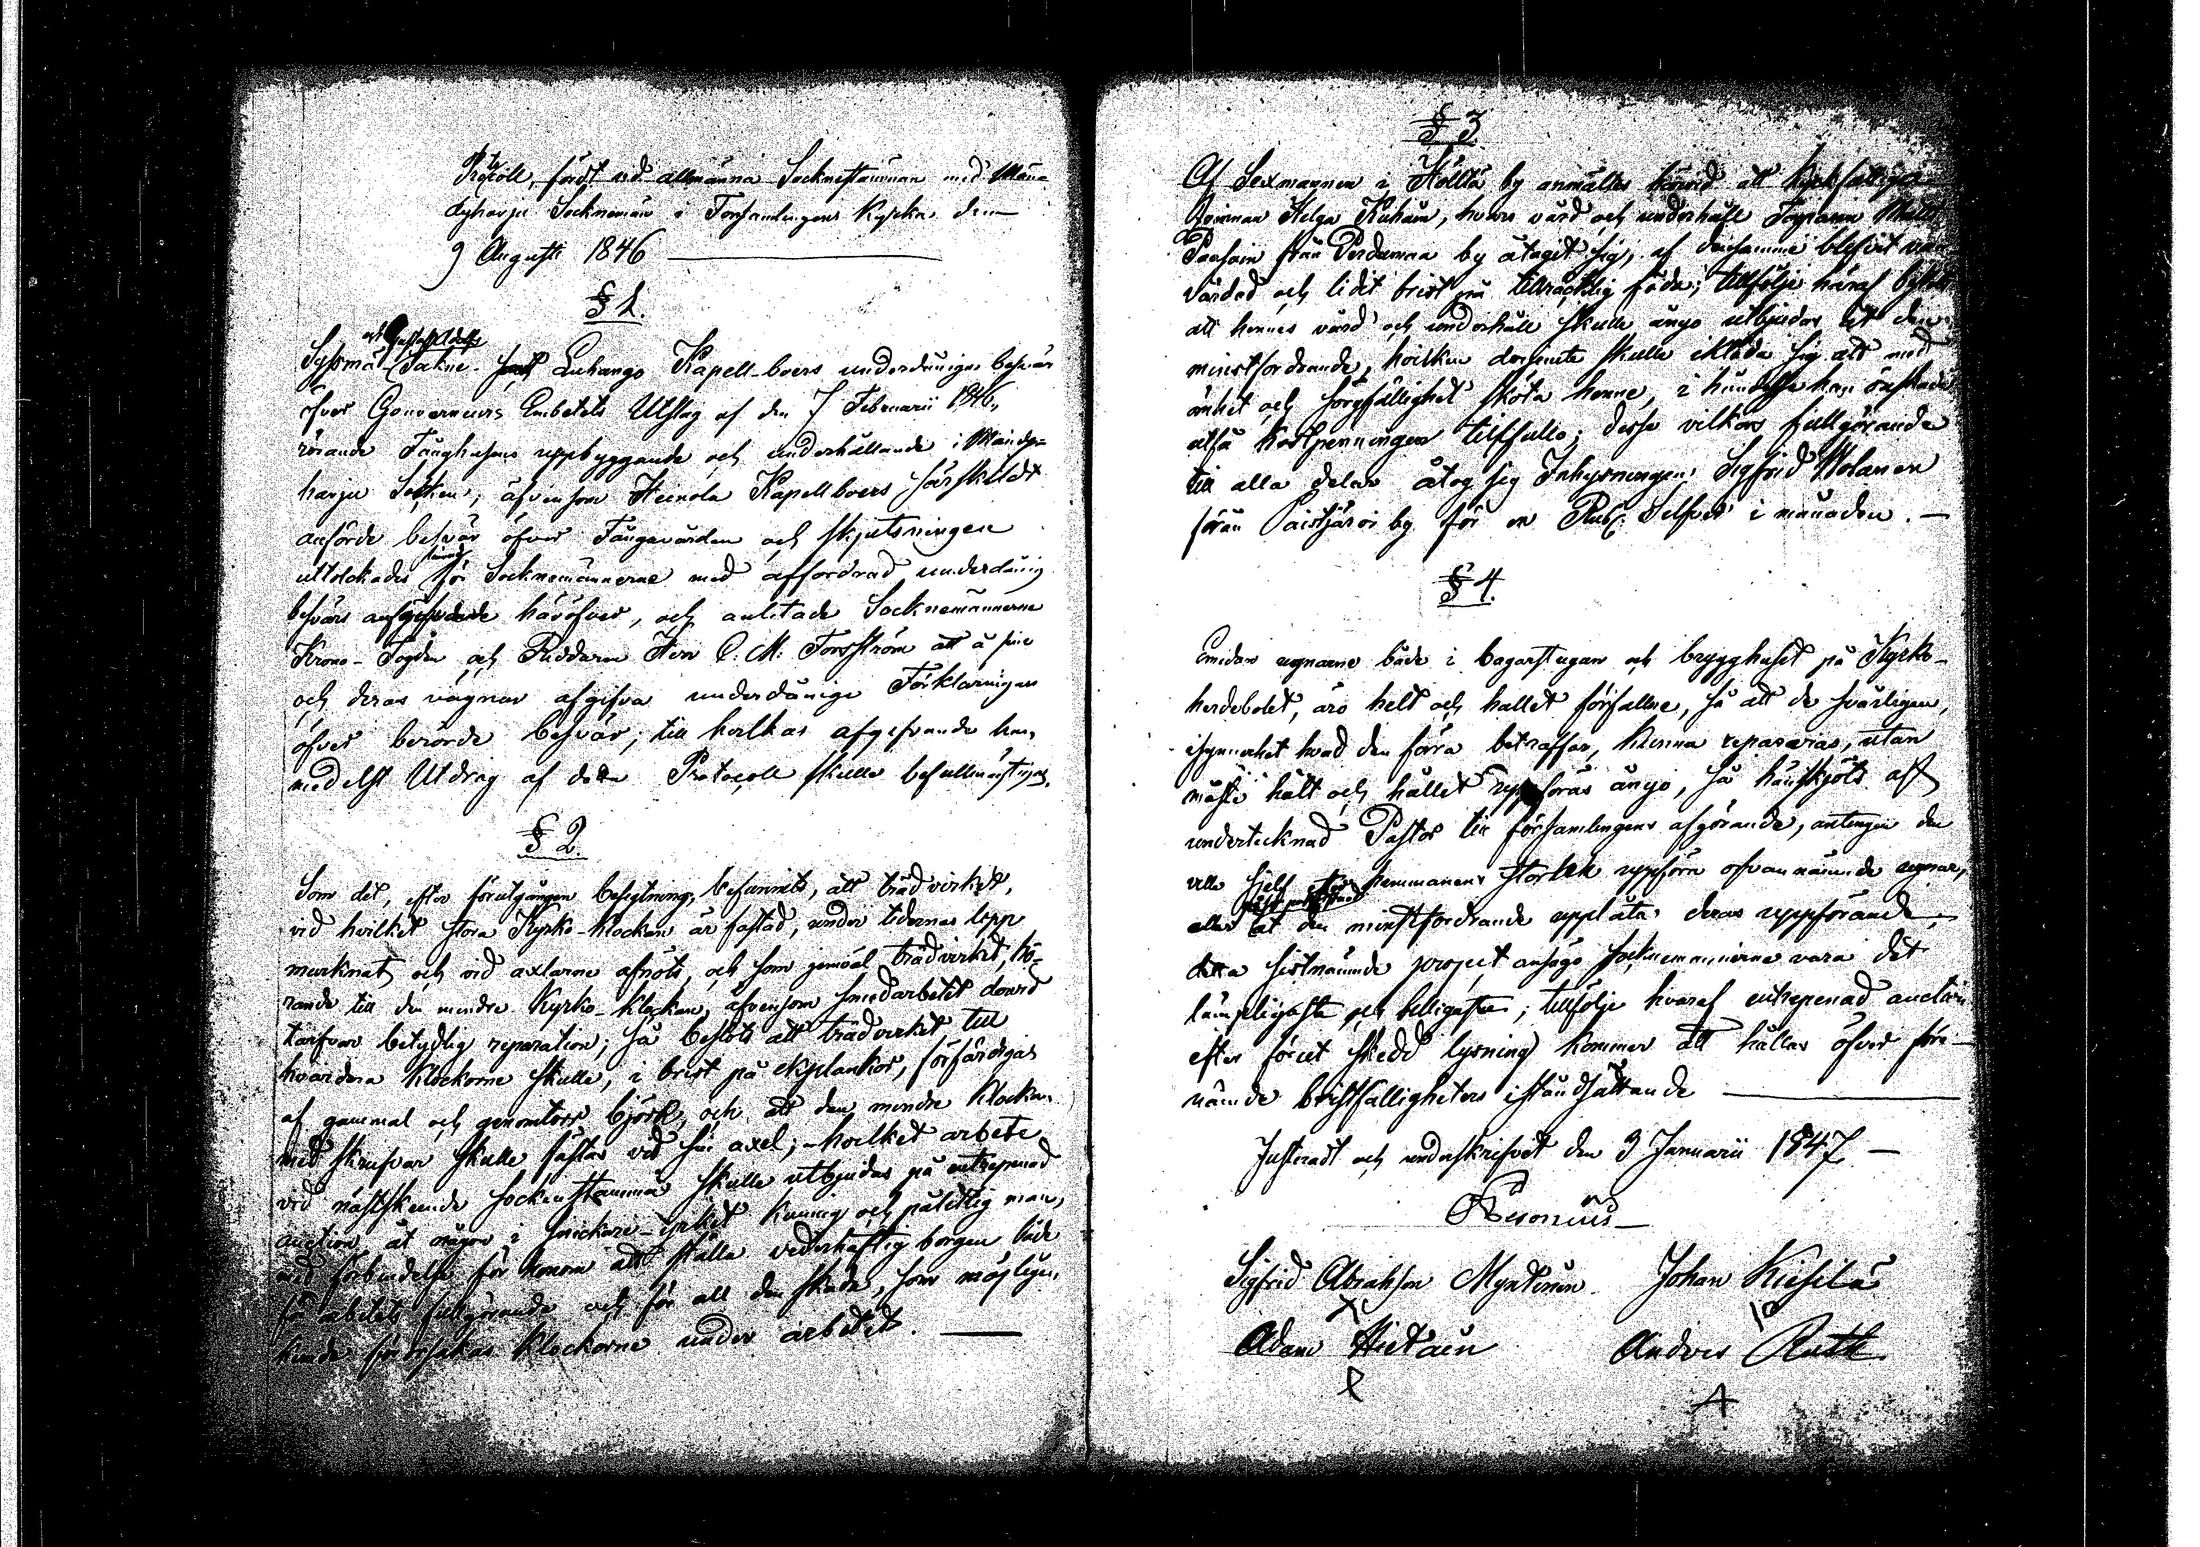 Protocoll, fördt vid allmänna Sockenstämman med Mänt-
tyharju Sockenmän i Församlingens Kyrka den
9 Augusti 1846
§ 1.
och Gustaf Adolfs
Sysmä Sokne- Luhango Kapell-boers underdåniga besvär
öfver Gouverneurs Embetets Utslag af den 7 Februarii 1846,
rörande Fånghusens uppbyggande och underhållande i Mändy-
harju Socken, äfvensom Heinola Kapellboers särskildt
anförde besvär öfver Fångevården och skjutsningen
uttolckades för Socknemännerne med affordrad underdånig
besvärs afgifvande häröfver, och anlitade Socknemännerne
Krono-Fogden och Riddaren Herr C. M. Forsström att å sine
och deras vägnar afgifva underdånige Förklaringar
öfver berörde besvär; till hvilkas afgifvande han,
medelst Utdrag af detta Protocoll skulle befullmägtigas.
§ 2
Som det, efter förutgången besigtning, befunnits, att trädvirket,
vid hvilket stora Kyrko-Klockan är fästad, under tidernas lopp
murknat och vid axlarne afnöts, och som jemväl trädvirket, hö-
rande till den mindre Kyrko-Klockan, äfvensom smedarbetet dervid
tarfvar betydlig reparation; så beslöts att trädvirket till
hvardera Klockorne skulle, i brist på ekplankor, förfärdigas
af gammal och genomtorr björk, och att den mindre Klockan
med skrufvar skulle fästas vid sin axel; hvilket arbete
vid nästskeende Sockenstämma skulle utbjudas på entrepenad
auction åt någon i snickare-yrket kunnig och pålitlig man,
med förbindelse för honom att ställa vederhäftig borgen både
för arbetets fullgörande och för all den skada, som möjligen
kunde förorsakas Klockorne under arbetet.
§ 3
Af Sexmannen i Höltta by anmältes härvid att
Qvinnan Helga Kuhäin, hvars vård och underhåll Torparen Matts
Paasoin från Perdumaa by åtagit sig, af densamme blefvit van-
vårdad och lidit brist på tillräcklig föda; tillfölje häraf
att hennes vård och underhåll skulle ånyo utbjudas åt den
minstfordrande, hvilken dermedelst skulle ikläda sig att med
ömhet och sorgfällighet sköta henne, i händelse han önskade
utfå Kostpenningen tillfullo; desse vilkors fullgörande
till alla delar åtog sig Inhysningen Sigfrid Wolanen
från Paistjärvi by för en Rub. Silfver i månaden.
§ 4.
Emedan ugnarne både i bagarstugan och brygghuset på Kyrko-
herdebolet, äro helt och hållet förfallne, så att de svårligen,
isynnerhet hvad den förra beträffar, kunna repareras, utan
måste hält och hållet uppföras ånyo, så hänskjöts af
undertecknad Pastor till församlingens afgörande, antingen den
ville sjelf efter hemmanens storlek uppföra ofvannämnde ugnar,
eller åt den minstfordrande upplåta deras uppförande;
detta sistnämnde project ansågo sockenmännerne vara det
lämpligaste och billigaste; tillfölje hvaraf entrepenad auction
efter förut skedd lysning kommer att hållas öfver före-
nämde bristfälligheters iståndsättande
Justeradt och underskrifvet den 3 Januarii 1847 —
Sigfrid Abrahson Myntinen Johan Kiesilä
Adam Hietain Anders Ruth